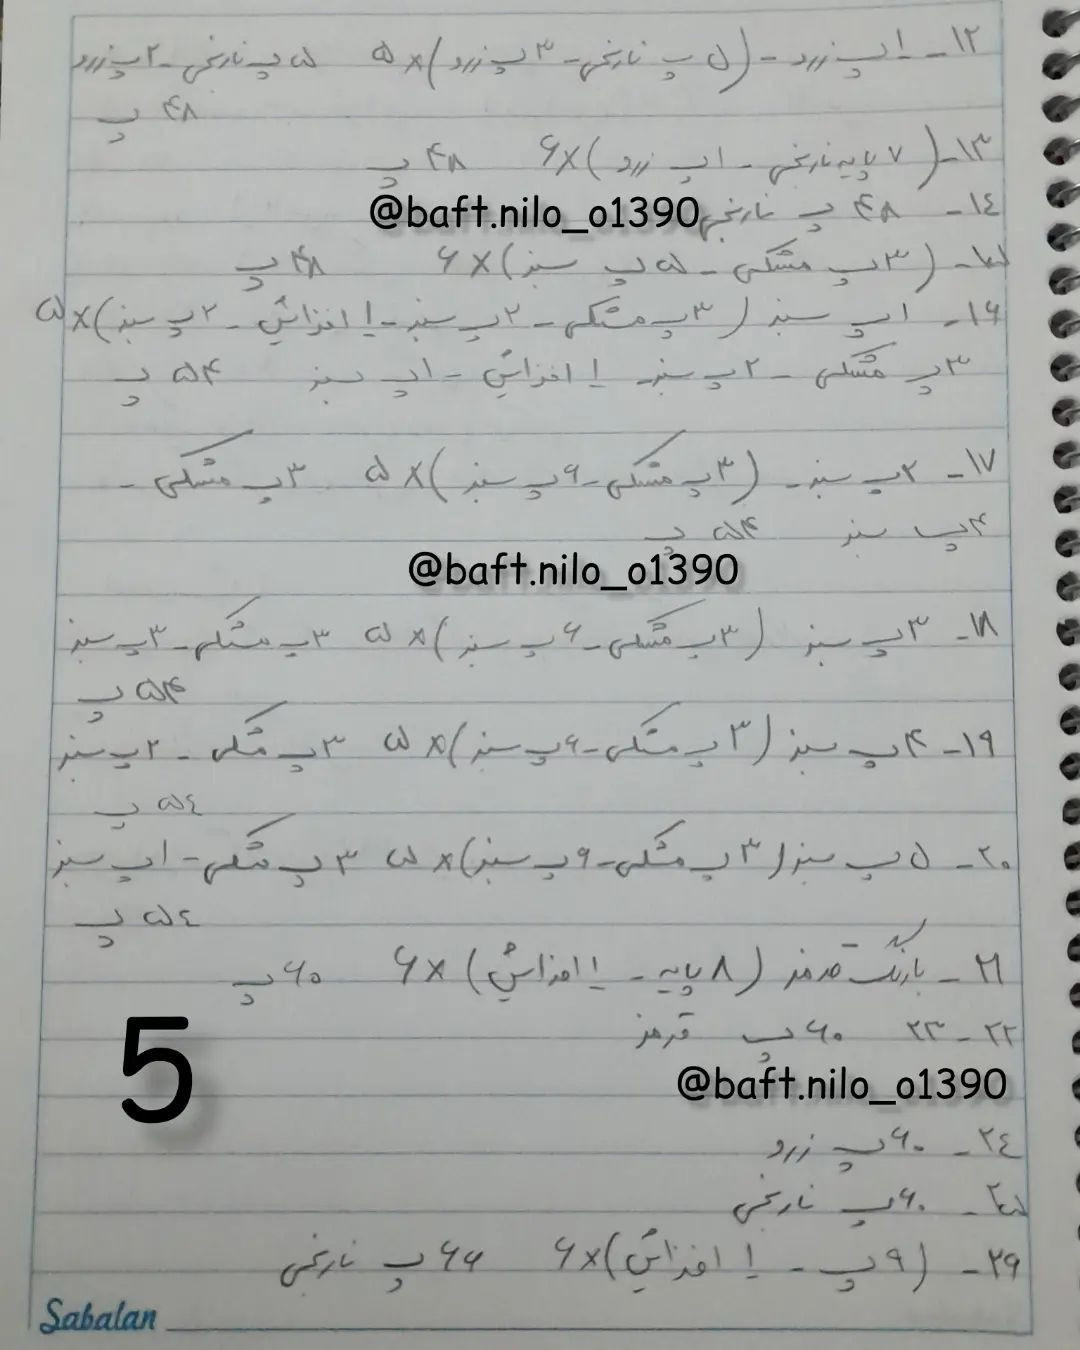 ۱۲- ۱پ زرد - (۵ پ نارنجی - ۳پ زرد)×۵ ۵پ نارنجی - ۲پ زرد
۴۸ پ
۱۳- (۷ پایه نارنجی - ۱پ زرد)×۶ ۴۸ پ
۱۴- ۴۸ پ نارنجی
@baft.nilo_o1390
۱۵- (۳پ مشکی - ۵پ سبز)×۶ ۴۸ پ
۱۶- ۱پ سبز (۳پ مشکی - ۲پ سبز - ۱ افزایش - ۲پ سبز)×۵
۳پ مشکی - ۲پ سبز - ۱ افزایش - ۱پ سبز ۵۴ پ
۱۷- ۲پ سبز - (۳پ مشکی - ۶پ سبز)×۵ ۳پ مشکی -
۴پ سبز ۵۴ پ
@baft.nilo_o1390
۱۸- ۳پ سبز (۳پ مشکی - ۶پ سبز)×۵ ۳پ مشکی - ۳پ سبز
۵۴ پ
۱۹- ۴پ سبز (۳پ مشکی - ۶پ سبز)×۵ ۳پ مشکی - ۲پ سبز
۵٤ پ
۲۰- ۵پ سبز (۳پ مشکی - ۶پ سبز)×۵ ۳پ مشکی - ۱پ سبز
۵٤ پ
۲۱- با رنگ قرمز (۸ پایه - ۱ افزایش)×۶ ۶۰پ
۲۲-۲۳ ۶۰پ قرمز
5
@baft.nilo_o1390
۲٤- ۶۰پ زرد
۲۵- ۶۰پ نارنجی
۲۶- (۹پ - ۱ افزایش)×۶ ۶۶ پ نارنجی
Sabalan